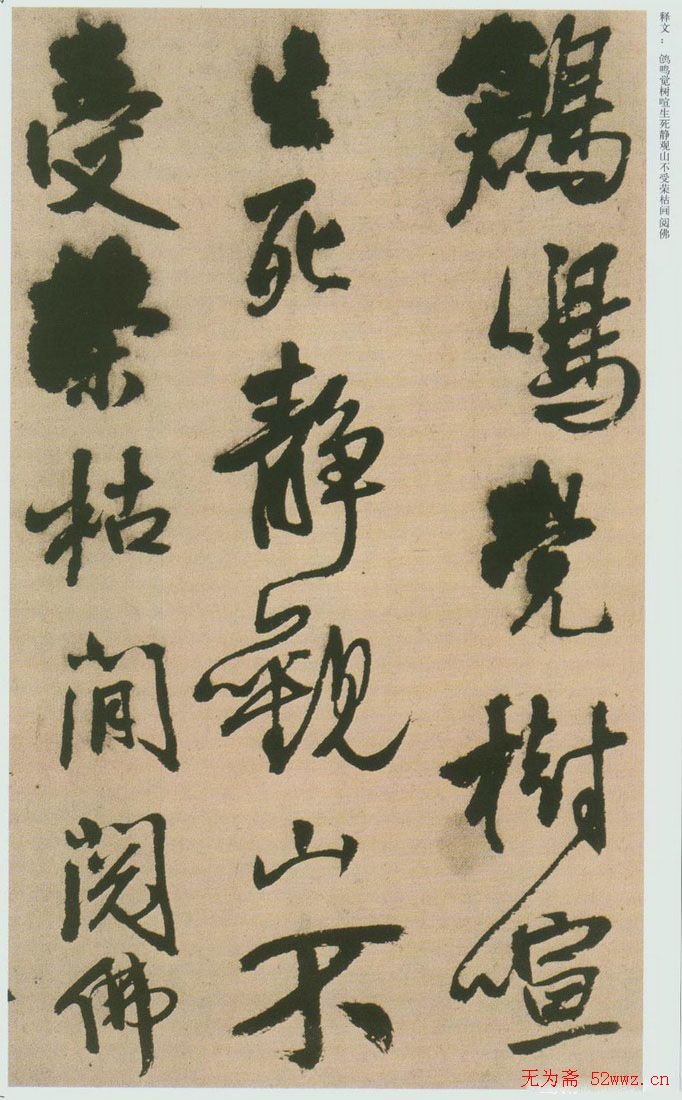 释文： 鸣觉树喧生死静观山不受荣枯间阅佛
鳴覺樹喧
生死靜觀山不
受榮枯間閱佛
无为斋 52wwz.cn